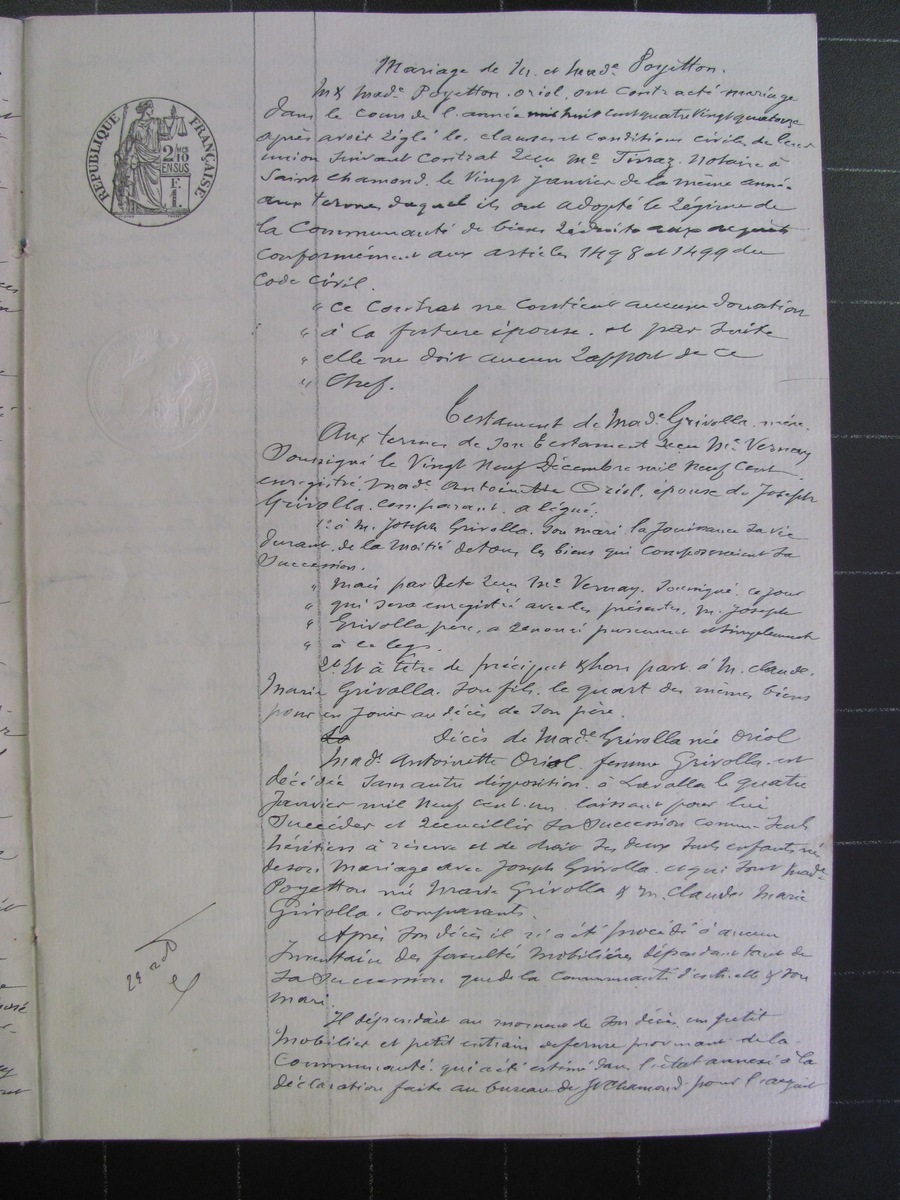 RÉPUBLIQUE FRANÇAISE
2/10
EN SUS
F.
1.
Mariage de Mr et Made Poyetton.
Mr & Made Poyetton. Oriol, ont contracté mariage
dans le cours de l'année mil huit cent quatre vingt quatorze
après avoir réglé les clauses et conditions civiles de leur
union suivant contrat reçu Me Tivraz. Notaire à
Saint Chamond. le Vingt Janvier de la même année
aux termes duquel ils ont adopté le régime de
la Communauté de biens réduite aux acquêts
conformément aux articles 1498 et 1499 du
Code civil.
" ce contrat ne contient aucune donation
" à la future épouse. et par suite
" elle ne doit aucun rapport de ce
" Chef.
Testament de Made Grivolla. mère.
Aux termes de son Testament reçu Me Vernay
Soussigné le Vingt Neuf Décembre mil neuf cent
enregistré, Made Antoinette Oriol, épouse de Joseph
Grivolla. comparant, a légué.
1o à M. Joseph Grivolla. son mari la Jouissance sa vie
durant, de la moitié de tous les biens qui composeraient sa
Succession.
" mais par acte reçu Me Vernay. soussigné. ce jour
" qui sera enregistré avec les présentes, M. Joseph
" Grivolla père, a renoncé purement et simplement
" à ce legs.
2o Et à titre de préciput & hors part à M. Claude.
Marie Grivolla. son fils. le quart des mêmes biens
pour en jouir au décès de son père.
Décès de Made Grivolla née Oriol
Made Antoinette Oriol. femme Grivolla. est
décédée sans autre disposition. à Lavalla le quatre
Janvier mil neuf cent un. laissant pour lui
succéder et recueillir sa succession comme seuls
héritiers à réserve et de droit ses deux seuls enfants nés
de son mariage avec Joseph Grivolla. et qui sont Made
Poyetton née Marie Grivolla & M. Claude Marie
Grivolla. comparants.
Après son décès il n'a été procédé à aucun
Inventaire des facultés mobilières dépendant tant de
sa succession que de la communauté d'entre elle & son
mari.
Il dépendait au moment de son décès un petit
mobilier et petit entrain de ferme provenant de la
Communauté. qui a été estimé dans l'état annexé à la
déclaration faite au bureau de St Chamond. pour l'acquit